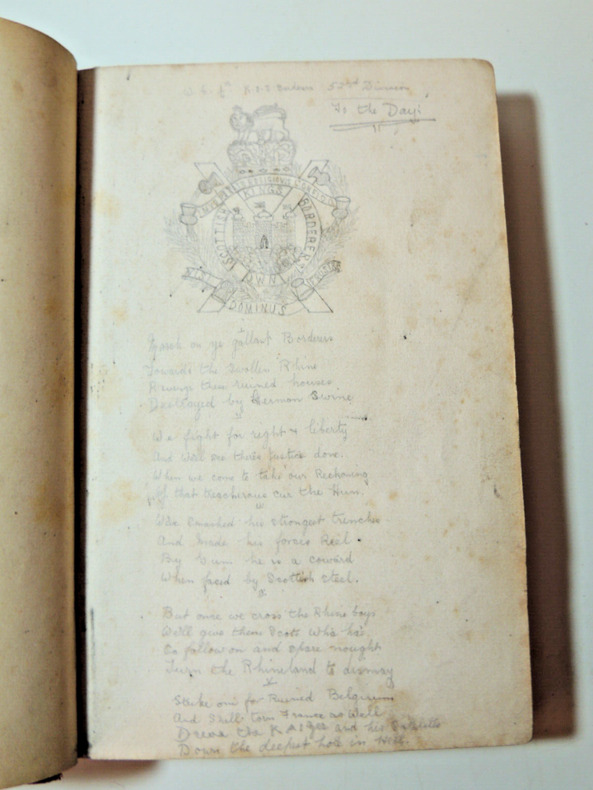 K.O.S. Borderers 52nd Division
To the Day!
KINGS
SCOTTISH
BORDERERS
OWN
DOMINUS
March on ye gallant Borderers
Towards the Swollen Rhine
Avenge them ruined houses
Destroyed by German Swine
We fight for right & liberty
And will see there justice done.
When we come to take our Reckoning
Of that treacherous cur the Hun.
III
We've Smashed his strongest trenches
And made his forces Reel
he is a coward
When faced by Scottish Steel.
But once we cross the Rhine boys
We'll give them Scots Wha hae,
Go follow on and spare nought
Turn the Rhineland to dismay
V
Strike one for Ruined Belgium
And Still torn France as well
Drive the KAISER and his Satellites
Down the deepest hole in Hell.